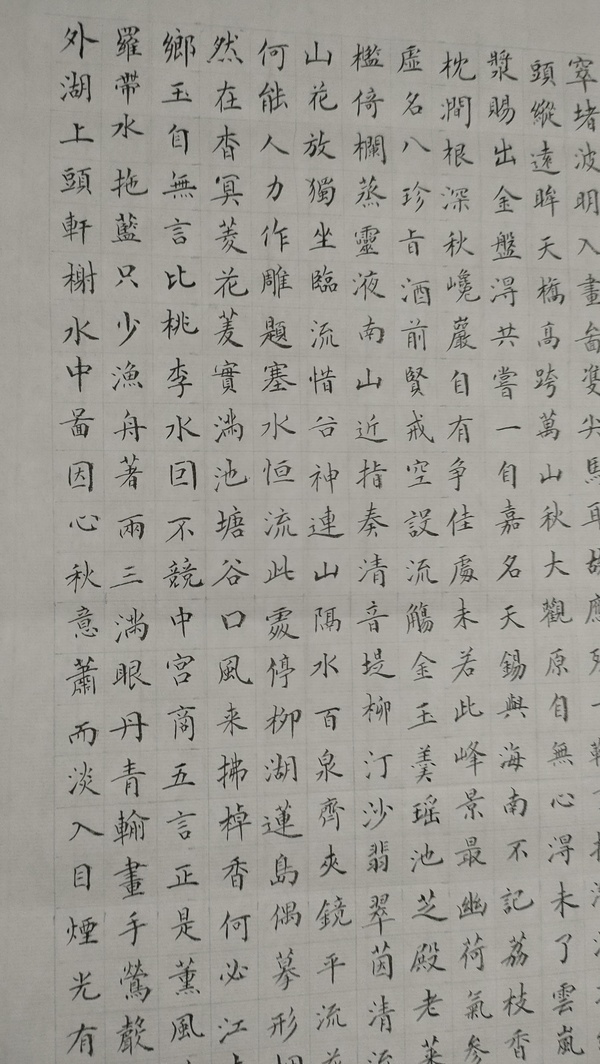 窣堵波明入畫啚雙尖馬耳故應
頭縱遠眸天橋高跨萬山秋大觀原自無心得未了雲嵐
漿賜出金盤淂共嘗一自嘉名天錫與海南不記荔枝香
枕澗根深秋巉巖自有爭佳處未若此峰景最幽荷氣參
虛名八珍旨酒前賢戒空設流觴金玉羹瑶池芝殿老萊
檻倚欄蒸靈液南山近指奏清音堤柳汀沙翡翠茵清流
山花放獨坐臨流惜谷神連山隔水百泉齊夾鏡平流花
何能人力作雕題塞水恒流此處停柳湖蓮島偶摹形
然在杳冥菱花菱實滿池塘谷口風来拂棹香何必江
鄉玉自無言比桃李水囙不競中宮商五言正是薰風
羅帶水拖藍只少漁舟著兩三滿眼丹青輸畫手鶯聲
外湖上頭軒榭水中啚因心秋意蕭而淡入目煙光有